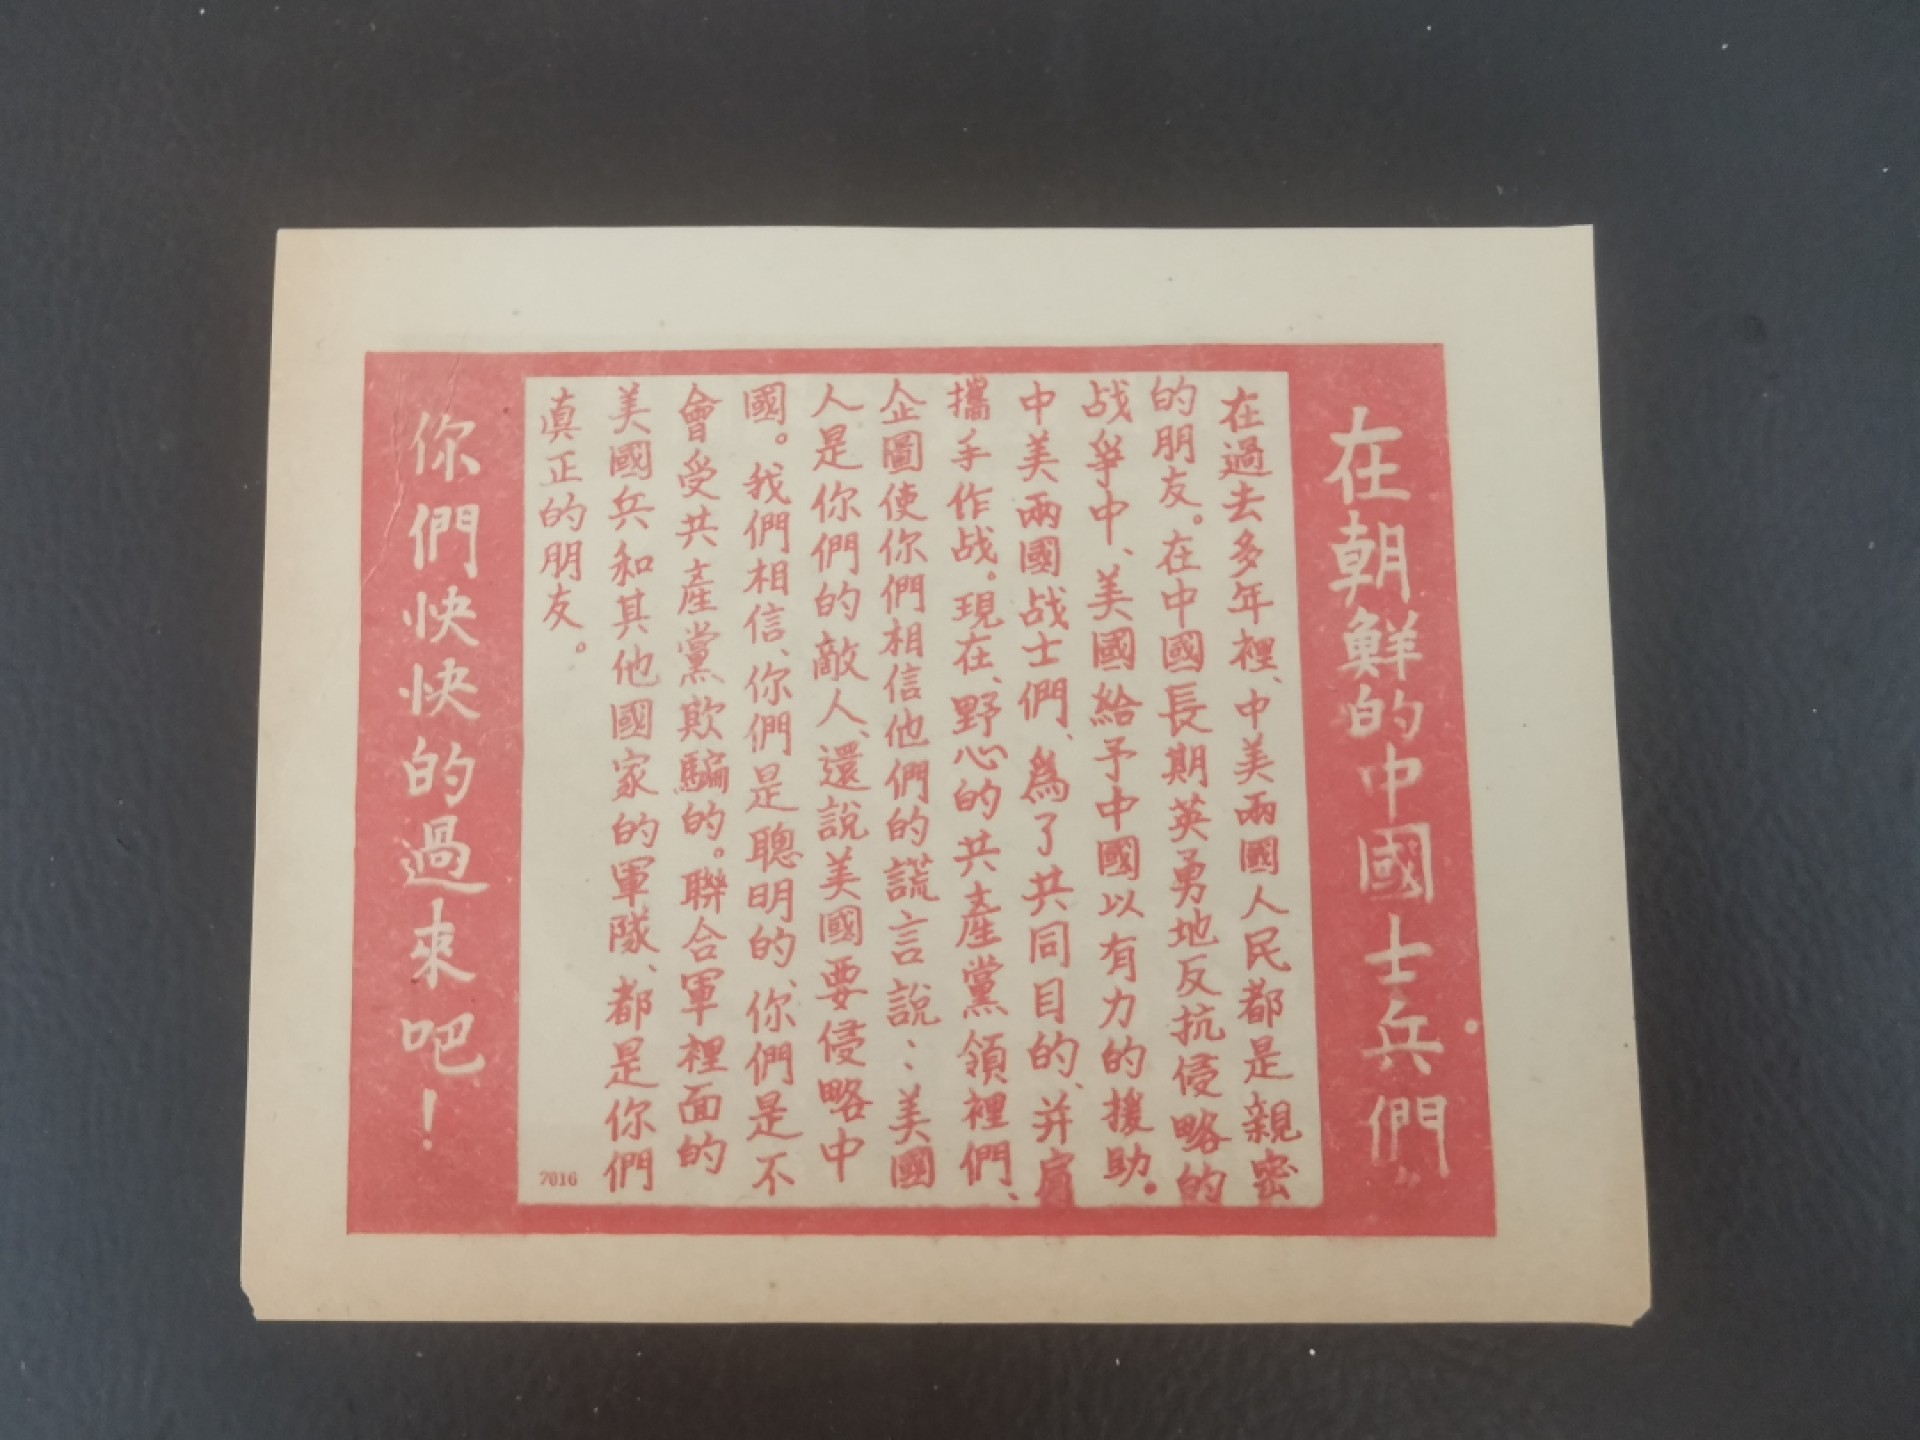 在朝鮮的中國士兵們
在過去多年裡、中美兩國人民都是親密
的朋友。在中國長期英勇地反抗侵略的
战爭中、美國給予中國以有力的援助。
中美兩國战士們、為了共同目的、并肩
攜手作战。現在、野心的共產黨領裡們、
企圖使你們相信他們的謊言說：美國
人是你們的敵人、還說美國要侵略中
國。我們相信、你們是聰明的、你們是不
會受共產黨欺騙的。聯合軍裡面的
美國兵和其他國家的軍隊、都是你們
真正的朋友。
7016
你們快快的過來吧！